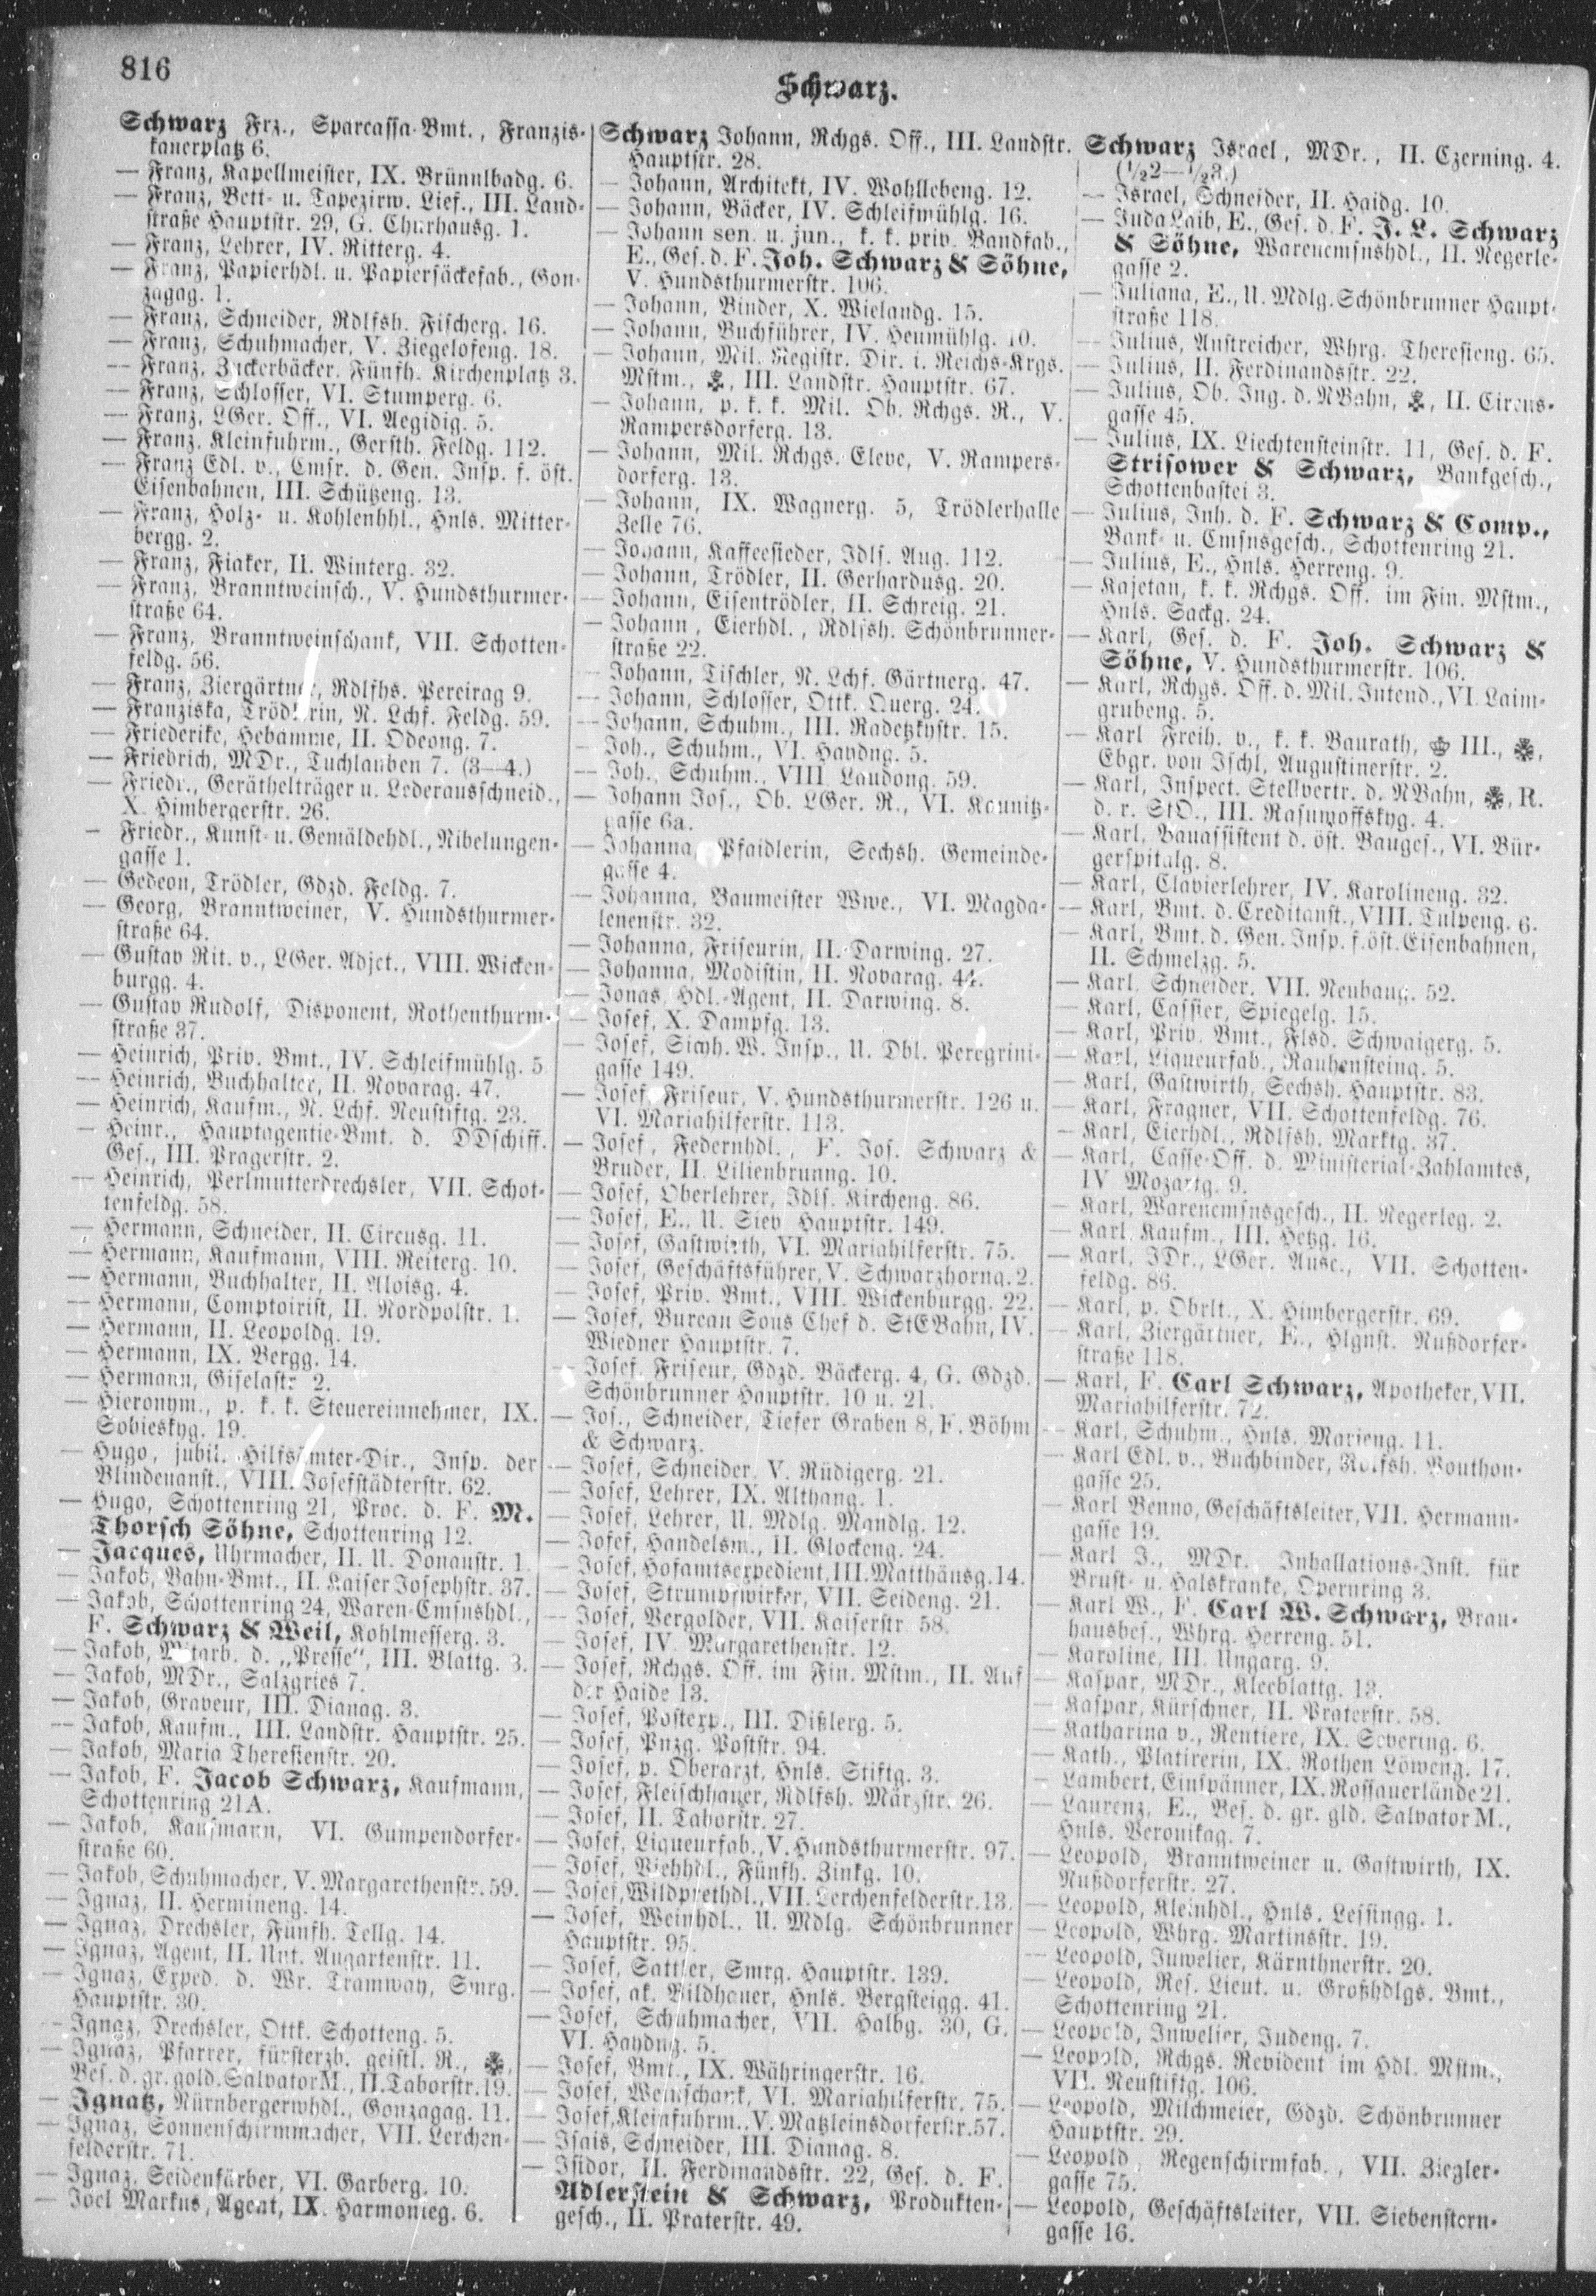 816
Schwarz.
Schwarz Frz., Sparcassa-Bmt., Franzis-
kanerplatz 6.
— Franz, Kapellmeister, IX. Brünnlbadg. 6.
— Franz, Bett- u. Tapezirw. Lief., III. Land-
straße Hauptstr. 29, G. Churhausg. 1.
— Franz, Lehrer, IV. Ritterg. 4.
— Franz, Papierhdl. u. Papiersäckefab., Gon-
zagag. 1.
— Franz, Schneider, Rdlfsh. Fischerg. 16.
— Franz, Schuhmacher, V. Ziegelofeng. 18.
— Franz, Zuckerbäcker, Fünfh. Kirchenplatz 3.
— Franz, Schlosser, VI. Stumperg. 6.
— Franz, LGer. Off., VI. Aegidig. 5.
— Franz, Kleinfuhrm., Gersth. Feldg. 112.
— Franz Edl. v., Cmsr. d. Gen. Insp. f. öst.
Eisenbahnen, III. Schützeng. 13.
— Franz, Holz- u. Kohlenhhl., Hnls. Mitter-
bergg. 2.
— Franz, Fiaker, II. Winterg. 32.
— Franz, Branntweinsch., V. Hundsthurmer-
straße 64.
— Franz, Branntweinschank, VII. Schotten-
feldg. 56.
— Franz, Ziergärtner, Rdlfhs. Pereirag 9.
— Franziska, Trödlerin, N. Lchf. Feldg. 59.
— Friederike, Hebamme, II. Odeong. 7.
— Friedrich, MDr., Tuchlauben 7. (3—4.)
— Friedr., Geräthelträger u. Lederausschneid.,
X. Himbergerstr. 26.
— Friedr., Kunst- u. Gemäldehdl., Nibelungen-
gasse 1.
— Gedeon, Trödler, Gdzd. Feldg. 7.
— Georg, Branntweiner, V. Hundsthurmer-
straße 64.
— Gustav Rit. v., LGer. Adjct., VIII. Wicken-
burgg. 4.
— Gustav Rudolf, Disponent, Rothenthurm-
straße 37.
— Heinrich, Priv. Bmt., IV. Schleifmühlg. 5
— Heinrich, Buchhalter, II. Novarag. 47.
— Heinrich, Kaufm., N. Lchf. Neustiftg. 23.
— Heinr., Hauptagentie-Bmt. d. DDschiff.
Ges., III. Pragerstr. 2.
— Heinrich, Perlmutterdrechsler, VII. Schot-
tenfeldg. 58.
— Hermann, Schneider, II. Circusg. 11.
— Hermann, Kaufmann, VIII. Reiterg. 10.
— Hermann, Buchhalter, II. Aloisg. 4.
— Hermann, Comptoirist, II. Nordpolstr. 1.
— Hermann, II. Leopoldg. 19.
— Hermann, IX. Bergg. 14.
— Hermann, Giselastr. 2.
— Hieronym., p. k. k. Steuereinnehmer, IX.
Sobieskyg. 19.
— Hugo, jubil. Hilfsämter-Dir., Insp. der
Blindenanst., VIII. Josefstädterstr. 62.
— Hugo, Schottenring 21, Proc. d. F. M.
Thorsch Söhne, Schottenring 12.
— Jacques, Uhrmacher, II. U. Donaustr. 1.
— Jakob, Bahn-Bmt., II. Kaiser Josephstr. 37.
— Jakob, Schottenring 24, Waren-Cmsnshdl.,
F. Schwarz & Weil, Kohlmesserg. 3.
— Jakob, Mitarb. d. „Presse“, III. Blattg. 3.
— Jakob, MDr., Salzgries 7.
— Jakob, Graveur, III. Dianag. 3.
— Jakob, Kaufm., III. Landstr. Hauptstr. 25.
— Jakob, Maria Theresienstr. 20.
— Jakob, F. Jacob Schwarz, Kaufmann,
Schottenring 21A.
— Jakob, Kaufmann, VI. Gumpendorfer-
straße 60.
— Jakob, Schuhmacher, V. Margarethenstr. 59.
— Ignaz, II. Hermineng. 14.
— Ignaz, Drechsler, Fünfh. Tellg. 14.
— Ignaz, Agent, II. Unt. Augartenstr. 11.
— Ignaz, Exped. d. Wr. Tramway, Smrg.
Hauptstr. 30.
— Ignaz, Drechsler, Ottk. Schotteng. 5.
— Ignaz, Pfarrer, fürsterzb. geistl. R.,
Bes. d. gr. gold. SalvatorM., II. Taborstr. 19.
— Ignatz, Nürnbergerwhdl., Gonzagag. 11.
— Ignaz, Sonnenschirmmacher, VII. Lerchen-
felderstr. 71.
— Ignaz, Seidenfärber, VI. Garberg. 10.
— Joel Markus, Agent, IX. Harmonieg. 6.
Schwarz Johann, Rchgs. Off., III. Landstr.
Hauptstr. 28.
— Johann, Architekt, IV. Wohllebeng. 12.
— Johann, Bäcker, IV. Schleifmühlg. 16.
— Johann sen. u. jun., k. k. priv. Bandfab.,
E., Ges. d. F. Joh. Schwarz & Söhne,
V. Hundsthurmerstr. 106.
— Johann, Binder, X. Wielandg. 15.
— Johann, Buchführer, IV. Heumühlg. 10.
— Johann, Mil. Registr. Dir. i. Reichs-Krgs.
Mstm., III. Landstr. Hauptstr. 67.
— Johann, p. k. k. Mil. Ob. Rchgs. R., V.
Rampersdorferg. 13.
— Johann, Mil. Rchgs. Eleve, V. Rampers-
dorferg. 13.
— Johann, IX. Wagnerg. 5, Trödlerhalle
Zelle 76.
— Johann, Kaffeesieder, Idls. Aug. 112.
— Johann, Trödler, II. Gerhardusg. 20.
— Johann, Eisentrödler, II. Schreig. 21.
— Johann, Eierhdl., Rdlfsh. Schönbrunner-
straße 22.
— Johann, Tischler, N. Lchf. Gärtnerg. 47.
— Johann, Schlosser, Ottk. Querg. 24.
— Johann, Schuhm., III. Radetzkystr. 15.
— Joh., Schuhm., VI. Haydng. 5.
— Joh., Schuhm., VIII. Laudong. 59.
— Johann Jos., Ob. LGer. R., VI. Kaunitz-
gasse 6a.
— Johanna, Pfaidlerin, Sechsh. Gemeinde-
gasse 4.
— Johanna, Baumeister Wwe., VI. Magda-
lenenstr. 32.
— Johanna, Friseurin, II. Darwing. 27.
— Johanna, Modistin, II. Novarag. 44.
— Jonas, Hdl.-Agent, II. Darwing. 8.
— Josef, X. Dampfg. 13.
— Josef, Sichh. W. Insp., U. Dbl. Peregrini-
gasse 149.
— Josef, Friseur, V. Hundsthurmerstr. 126 u.
VI. Mariahilferstr. 113.
— Josef, Federnhdl., F. Jos. Schwarz &
Bruder, II. Lilienbrunng. 10.
— Josef, Oberlehrer, Idls. Kircheng. 86.
— Josef, E., U. Siev Hauptstr. 149.
— Josef, Gastwirth, VI. Mariahilferstr. 75.
— Josef, Geschäftsführer, V. Schwarzhorng. 2.
— Josef, Priv. Bmt., VIII. Wickenburgg. 22.
— Josef, Bureau Sous Chef d. StEBahn, IV.
Wiedner Hauptstr. 7.
— Josef, Friseur, Gdzd. Bäckerg. 4, G. Gdzd.
Schönbrunner Hauptstr. 10 u. 21.
— Jos., Schneider, Tiefer Graben 8, F. Böhm
& Schwarz.
— Josef, Schneider, V. Rüdigerg. 21.
— Josef, Lehrer, IX. Althang. 1.
— Josef, Lehrer, U. Mdlg. Mandlg. 12.
— Josef, Handelsm., II. Glockeng. 24.
— Josef, Hofamtsexpedient, III. Matthäusg. 14.
— Josef, Strumpfwirker, VII. Seideng. 21.
— Josef, Vergolder, VII. Kaiserstr. 58.
— Josef, IV. Margarethenstr. 12.
— Josef, Rchgs. Off. im Fin. Mstm., II. Auf
der Haide 13.
— Josef, Postexp., III. Dißlerg. 5.
— Josef, Pnzg. Poststr. 94.
— Josef, p. Oberarzt, Hnls. Stiftg. 3.
— Josef, Fleischhauer, Rdlfsh. Märzstr. 26.
— Josef, II. Taborstr. 27.
— Josef, Liqueurfab., V. Hundsthurmerstr. 97.
— Josef, Viehhdl., Fünfh. Zinkg. 10.
— Josef, Wildprethdl., VII. Lerchenfelderstr. 13.
— Josef, Weinhdl., U. Mdlg. Schönbrunner
Hauptstr. 95.
— Josef, Sattler, Smrg. Hauptstr. 139.
— Josef, ak. Bildhauer, Hnls. Bergsteigg. 41.
— Josef, Schuhmacher, VII. Halbg. 30, G.
VI. Haydng. 5.
— Josef, Bmt., IX. Währingerstr. 16.
— Josef, Weinschank, VI. Mariahilferstr. 75.
— Josef, Kleinfuhrm., V. Matzleinsdorferstr. 57.
— Isais, Schneider, III. Dianag. 8.
— Isidor, II. Ferdinandsstr. 22, Ges. d. F.
Adlerstein & Schwarz, Produkten-
gesch., II. Praterstr. 49.
Schwarz Israel, MDr., II. Czerning. 4.
(½2—½3.)
— Israel, Schneider, II. Haidg. 10.
— Juda Laib, E., Ges. d. F. J. L. Schwarz
& Söhne, Warencmsnshdl., II. Negerle-
gasse 2.
— Juliana, E., U. Mdlg. Schönbrunner Haupt-
straße 118.
— Julius, Anstreicher, Whrg. Theresieng. 65.
— Julius, II. Ferdinandsstr. 22.
— Julius, Ob. Ing. d. NBahn, II. Circus-
gasse 45.
— Julius, IX. Liechtensteinstr. 11, Ges. d. F.
Strisower & Schwarz, Bankgesch.,
Schottenbastei 3.
— Julius, Inh. d. F. Schwarz & Comp.,
Bank- u. Cmsnsgesch., Schottenring 21.
— Julius, E., Hnls. Herreng. 9.
— Kajetan, k. k. Rchgs. Off. im Fin. Mstm.,
Hnls. Sackg. 24.
— Karl, Ges. d. F. Joh. Schwarz &
Söhne, V. Hundsthurmerstr. 106.
— Karl, Rchgs. Off. d. Mil. Intend., VI. Laim-
grubeng. 5.
— Karl Freih. v., k. k. Baurath, III.,
Ebgr. von Ischl, Augustinerstr. 2.
— Karl, Inspect. Stellvertr. d. NBahn, R.
d. r. StO., III. Rasumoffskyg. 4.
— Karl, Bauassistent d. öst. Bauges., VI. Bür-
gerspitalg. 8.
— Karl, Clavierlehrer, IV. Karolineng. 32.
— Karl, Bmt. d. Creditanst., VIII. Tulpeng. 6.
— Karl, Bmt. d. Gen. Insp. f. öst. Eisenbahnen,
II. Schmelzg. 5.
— Karl, Schneider, VII. Neubaug. 52.
— Karl, Cassier, Spiegelg. 15.
— Karl, Priv. Bmt., Flsd. Schwaigerg. 5.
— Karl, Liqueurfab., Rauhensteing. 5.
— Karl, Gastwirth, Sechsh. Hauptstr. 83.
— Karl, Fragner, VII. Schottenfeldg. 76.
— Karl, Eierhdl., Rdlfsh. Marktg. 37.
— Karl, Casse-Off. d. Ministerial-Zahlamtes,
IV Mozartg. 9.
— Karl, Warencmsnsgesch., II. Negerleg. 2.
— Karl, Kaufm., III. Hetzg. 16.
— Karl, JDr., LGer. Ausc., VII. Schotten-
feldg. 86.
— Karl, p. Obrlt., X. Himbergerstr. 69.
— Karl, Ziergärtner, E., Hlgnst. Nußdorfer-
straße 118.
— Karl, F. Carl Schwarz, Apotheker, VII.
Mariahilferstr. 72.
— Karl, Schuhm., Hnls. Marieng. 11.
— Karl Edl. v., Buchbinder, Rdlfsh. Pouthon-
gasse 25.
— Karl Benno, Geschäftsleiter, VII. Hermann-
gasse 19.
— Karl J., MDr. Inhallations-Inst. für
Brust- u. Halskranke, Opernring 3.
— Karl W., F. Carl W. Schwarz, Brau-
hausbes., Whrg. Herreng. 51.
— Karoline, III. Ungarg. 9.
— Kaspar, MDr., Kleeblattg. 13.
— Kaspar, Kürschner, II. Praterstr. 58.
— Katharina v., Rentiere, IX. Severing. 6.
— Kath., Platirerin, IX. Rothen Löweng. 17.
— Lambert, Einspänner, IX. Rossauerlände 21.
— Laurenz, E., Bes. d. gr. gld. Salvator M.,
Hnls. Veronikag. 7.
— Leopold, Branntweiner u. Gastwirth, IX.
Nußdorferstr. 27.
— Leopold, Kleinhdl., Hnls. Lessingg. 1.
— Leopold, Whrg. Martinsstr. 19.
— Leopold, Juwelier, Kärnthnerstr. 20.
— Leopold, Res. Lieut. u. Großhdlgs. Bmt.,
Schottenring 21.
— Leopold, Juwelier, Judeng. 7.
— Leopold, Rchgs. Revident im Hdl. Mstm.,
VII. Neustiftg. 106.
— Leopold, Milchmeier, Gdzd. Schönbrunner
Hauptstr. 29.
— Leopold, Regenschirmfab., VII. Ziegler-
gasse 75.
— Leopold, Geschäftsleiter, VII. Siebenstern-
gasse 16.